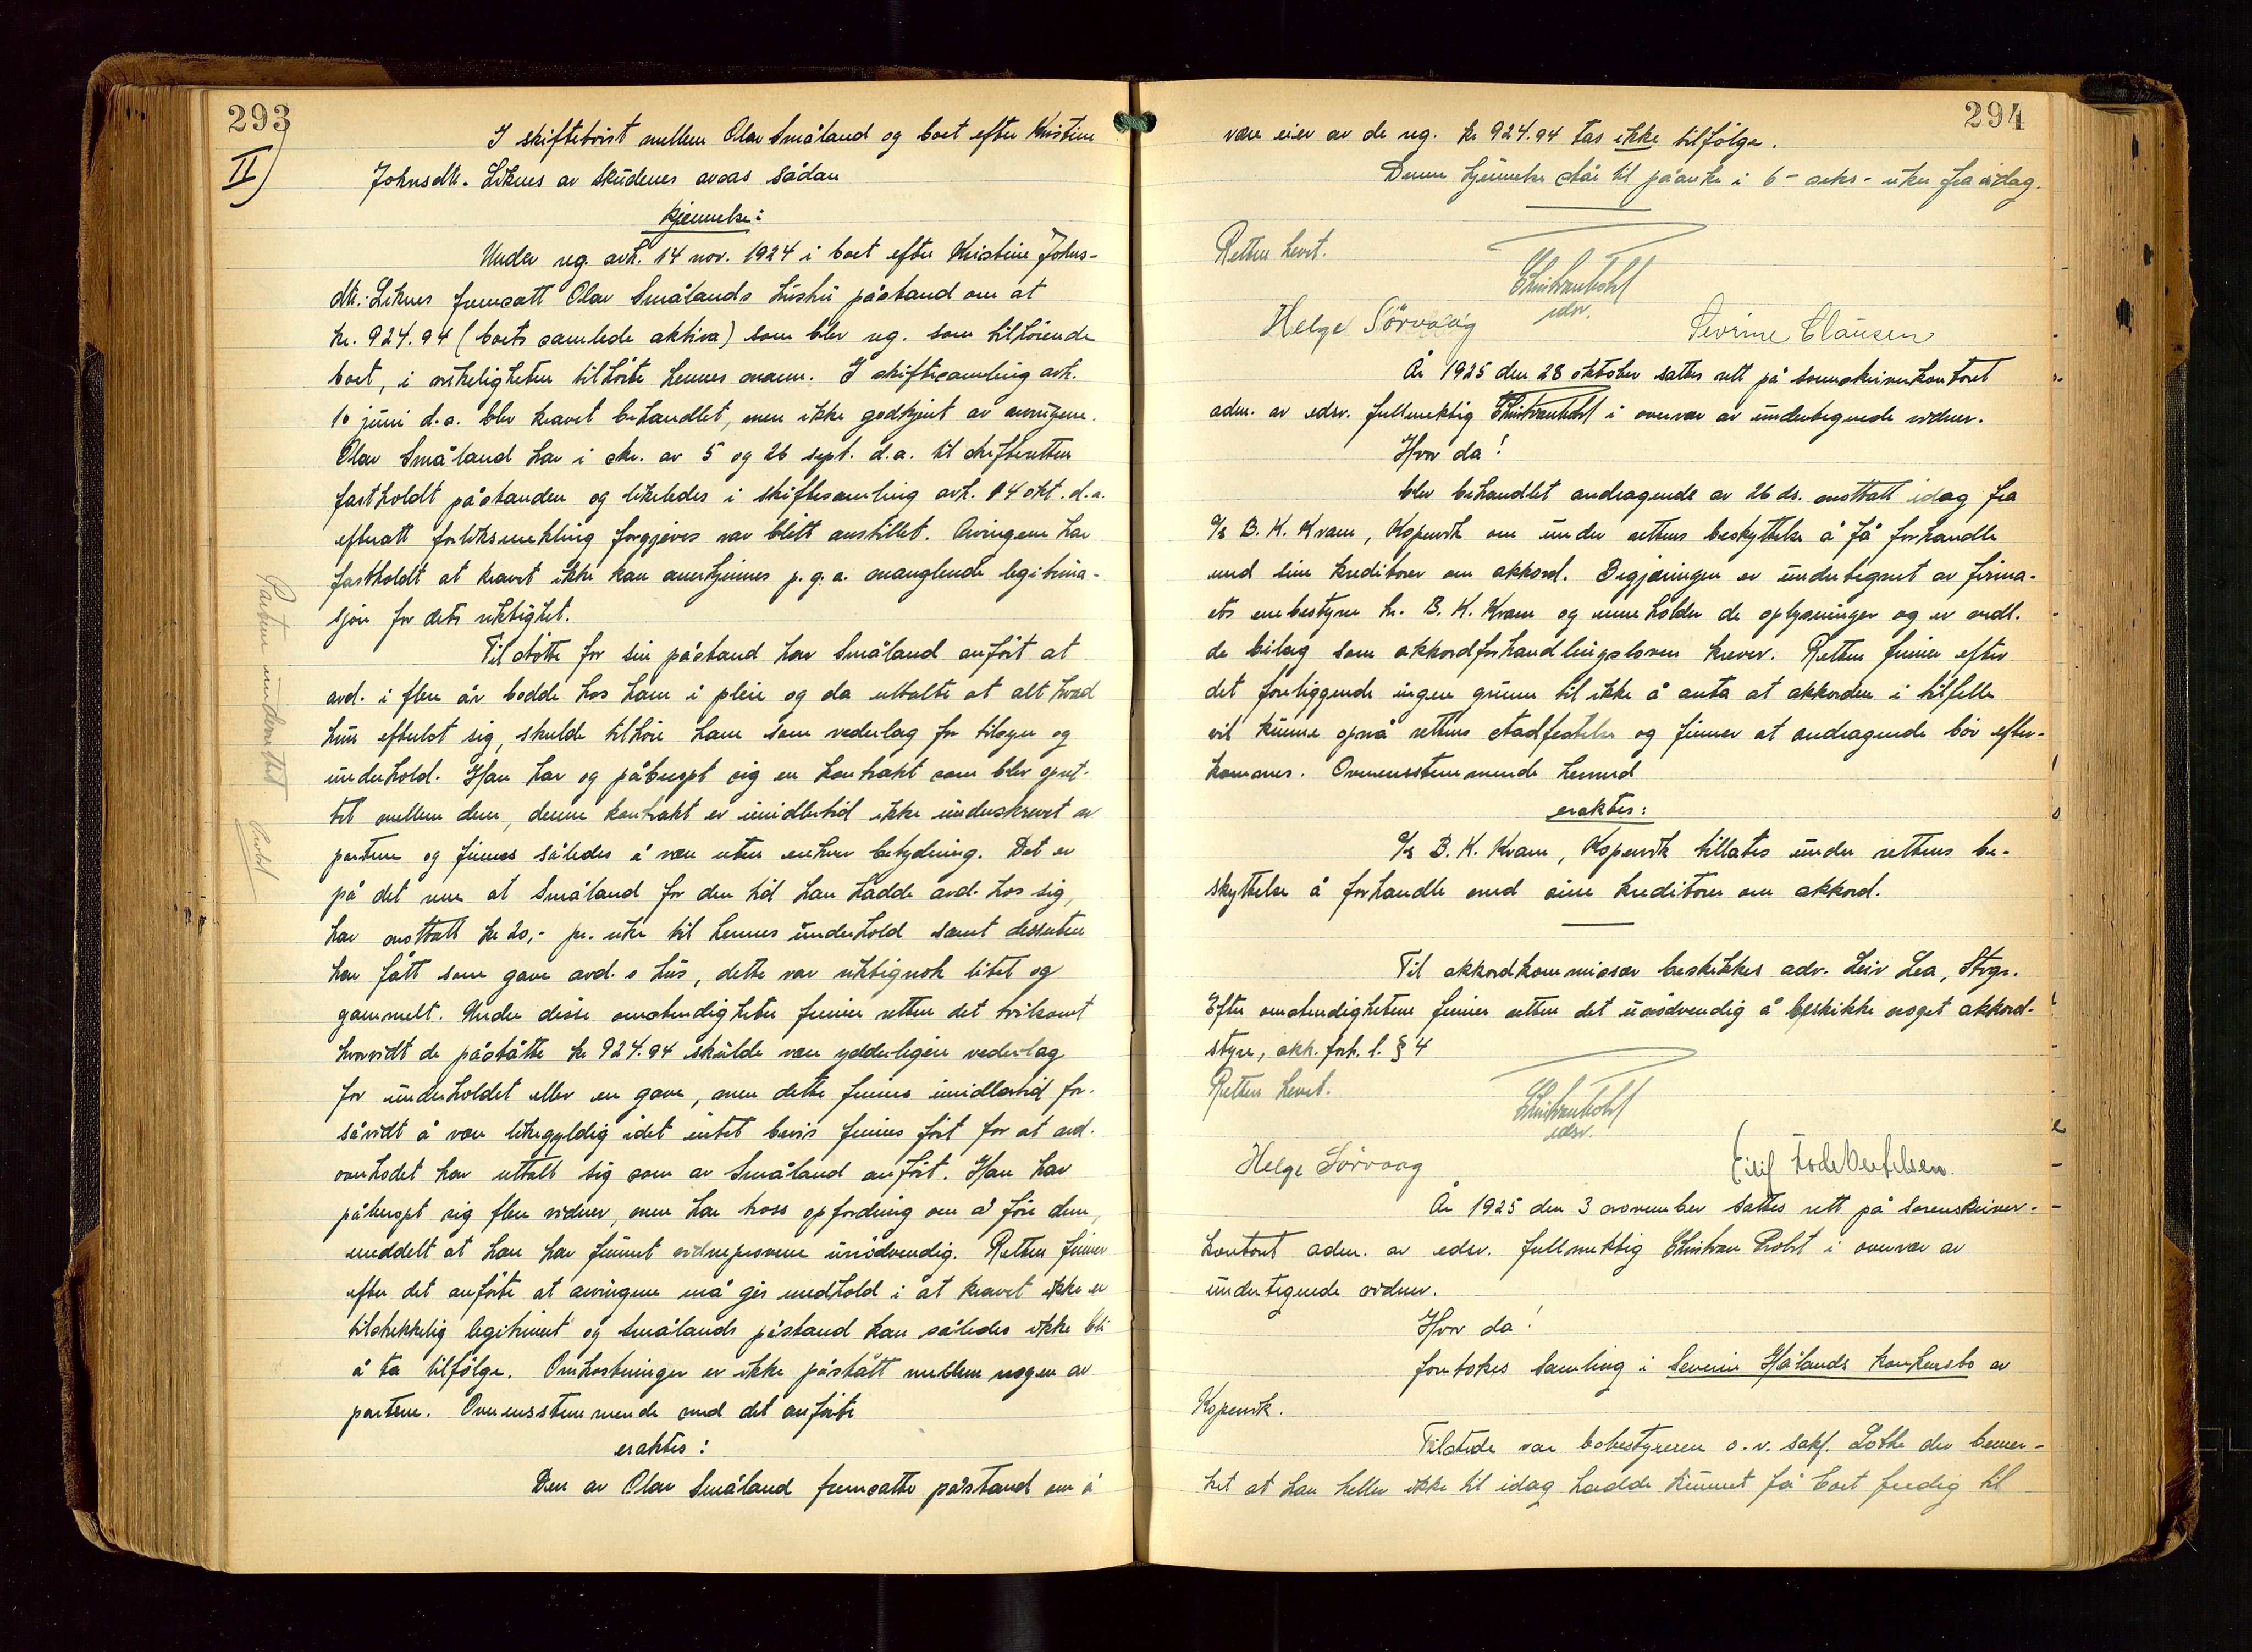 293
II)
I skiftetvist mellem Olav Småland og boet efter Kristine
Johnsdtr. Liknes av Skudenes avsas sådan
kjennelse:
Under reg. avh. 14 nov. 1924 i boet efter Kristine Johns-
dtr. Liknes fremsatt Olav Smålands hustru påstand om at
kr. 924.94 (boets samlede aktiva) som blev reg. som tilhörende
boet, i virkeligheten tilhörte hennes mann. I skiftesamling avh.
10 juni d.a. blev kravet behandlet, men ikke godkjent av arvingene.
Olav Småland har i skr. av 5 og 26 sept. d.a. til skifteretten
fastholdt påstanden og likeledes i skiftesamling avh. 14 okt. d.a.
efteratt forliksmekling forgjeves var blitt anstillet. Arvingene har
fastholdt at kravet ikke kan anerkjennes p.g.a. manglende legitima-
sjon for dets riktighet.
Til støtte for sin påstand har Småland anfört at
avd. i flere år bodde hos ham i pleie og da uttalte at alt hvad
hun efterlot sig, skulde tilhöre ham som vederlag for tilsyn og
underhold. Han har og påberopt sig en kontrakt som blev opret-
tet mellem dem, denne kontrakt er imidlertid ikke underskrevet av
partene og finnes således å være uten enhver betydning. Det er
på det rene at Småland for den tid han hadde avd. hos sig,
har mottatt kr 20,- pr. uke til hennes underhold samt dessuten
har fått som gave avd.s hus, dette var riktignok litet og
gammelt. Under disse omstendigheter finner retten det tvilsomt
hvorvidt de påståtte kr 924.94 skulde være ydderligere vederlag
for underholdet eller en gave, men dette finnes imidlertid for-
såvidt å være likegyldig idet intet bevis finnes fört for at avd.
overhodet har uttalt sig som av Småland anfört. Han har
påberopt sig flere vidner, men har tross opfordring om å före dem,
meddelt at han har funnet vidneprovene unödvendig. Retten finner
efter det anförte at arvingene må gis medhold i at kravet ikke er
tilstrekkelig legitimert og Smålands påstand kan således ikke bli
å ta tilfölge. Omkostninger er ikke påstått mellem nogen av
partene. Overensstemmende med det anförte
eraktes:
Den av Olav Småland fremsatte påstand om å
Partene underrettet
Probst
294
være eier av de reg. kr 924.94 tas ikke tilfölge.
Denne kjennelse står til påanke i 6 - seks - uker fra idag.
Retten hevet.
Christian Probst
edsv.
Helge Sörvaag
Severine Clausen
År 1925 den 28 oktober sattes rett på sorenskriverkontoret
adm. av edsv. fullmektig Christian Probst i overvær av undertegnede vidner.
Hvor da!
blev behandlet andragende av 26 ds. mottatt idag fra
A/s B. K. Kvam, Kopervik om under rettens beskyttelse å få forhandle
med sine kreditorer om akkord. Begjæringen er undertegnet av firma-
ets enebestyrer hr. B. K. Kvam og inneholder de oplysninger og er vedl.
de bilag som akkordforhandlingsloven krever. Retten finner efter
det foreliggende ingen grunn til ikke å anta at akkorden i tilfelle
vil kunne opnå rettens stadfestelse og finner at andragende bör efter-
kommes. Overensstemmende hermed
eraktes:
A/s B. K. Kvam, Kopervik tillates under rettens be-
skyttelse å forhandle med sine kreditorer om akkord.
Til akkordkommissær beskikkes adv. Leiv Lea, Stvgr.
Efter omstendighetene finner retten det unödvendig å beskikke noget akkord-
styre, akk. forh. l. § 4
Retten hevet.
Christian Probst
edsv.
Helge Sörvaag
År 1925 den 3 november sattes rett på sorenskriver-
kontoret adm. av edsv. fullmektig Christian Probst i overvær av
undertegnede vidner.
Hvor da!
foretokes samling i Severin Hålands konkursbo av
Kopervik.
Tilstede var bobestyreren o.r. sakf. Lothe der bemer-
ket at han heller ikke til idag hadde kunnet få boet ferdig til